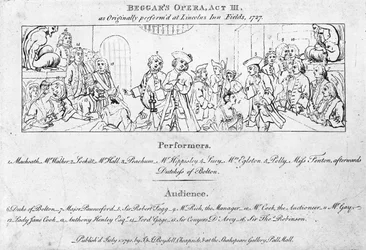 BEGGAR'S OPERA, ACT III.
as Originally perform'd at Lincolns Inn Fields, 1727.
Performers.
1. Macheath, Mr. Walker 2. Lockit, Mr. Hall 3. Peachum, Mr. Hippisley 4. Lucy, Mrs. Egleton 5. Polly, Miss Fenton, afterwards
Dutchess of Bolton.
Audience.
6. Duke of Bolton, 7. Major Pounceford, 8. Sir Robert Fagg, 9. Mr. Rich, the Manager, 10. Mr. Cook, the Auctioneer, 11. Mr. Gay,
12. Lady Jane Cook, 13. Anthony Henley Esqr. 14. Lord Gage, 15. Sir Conyers D'Arcy, 16. Sir Thos. Robinson.
Publish'd July 1, 1790, by J. & J. Boydell, Cheapside, & at the Shakspeare Gallery, Pall Mall.